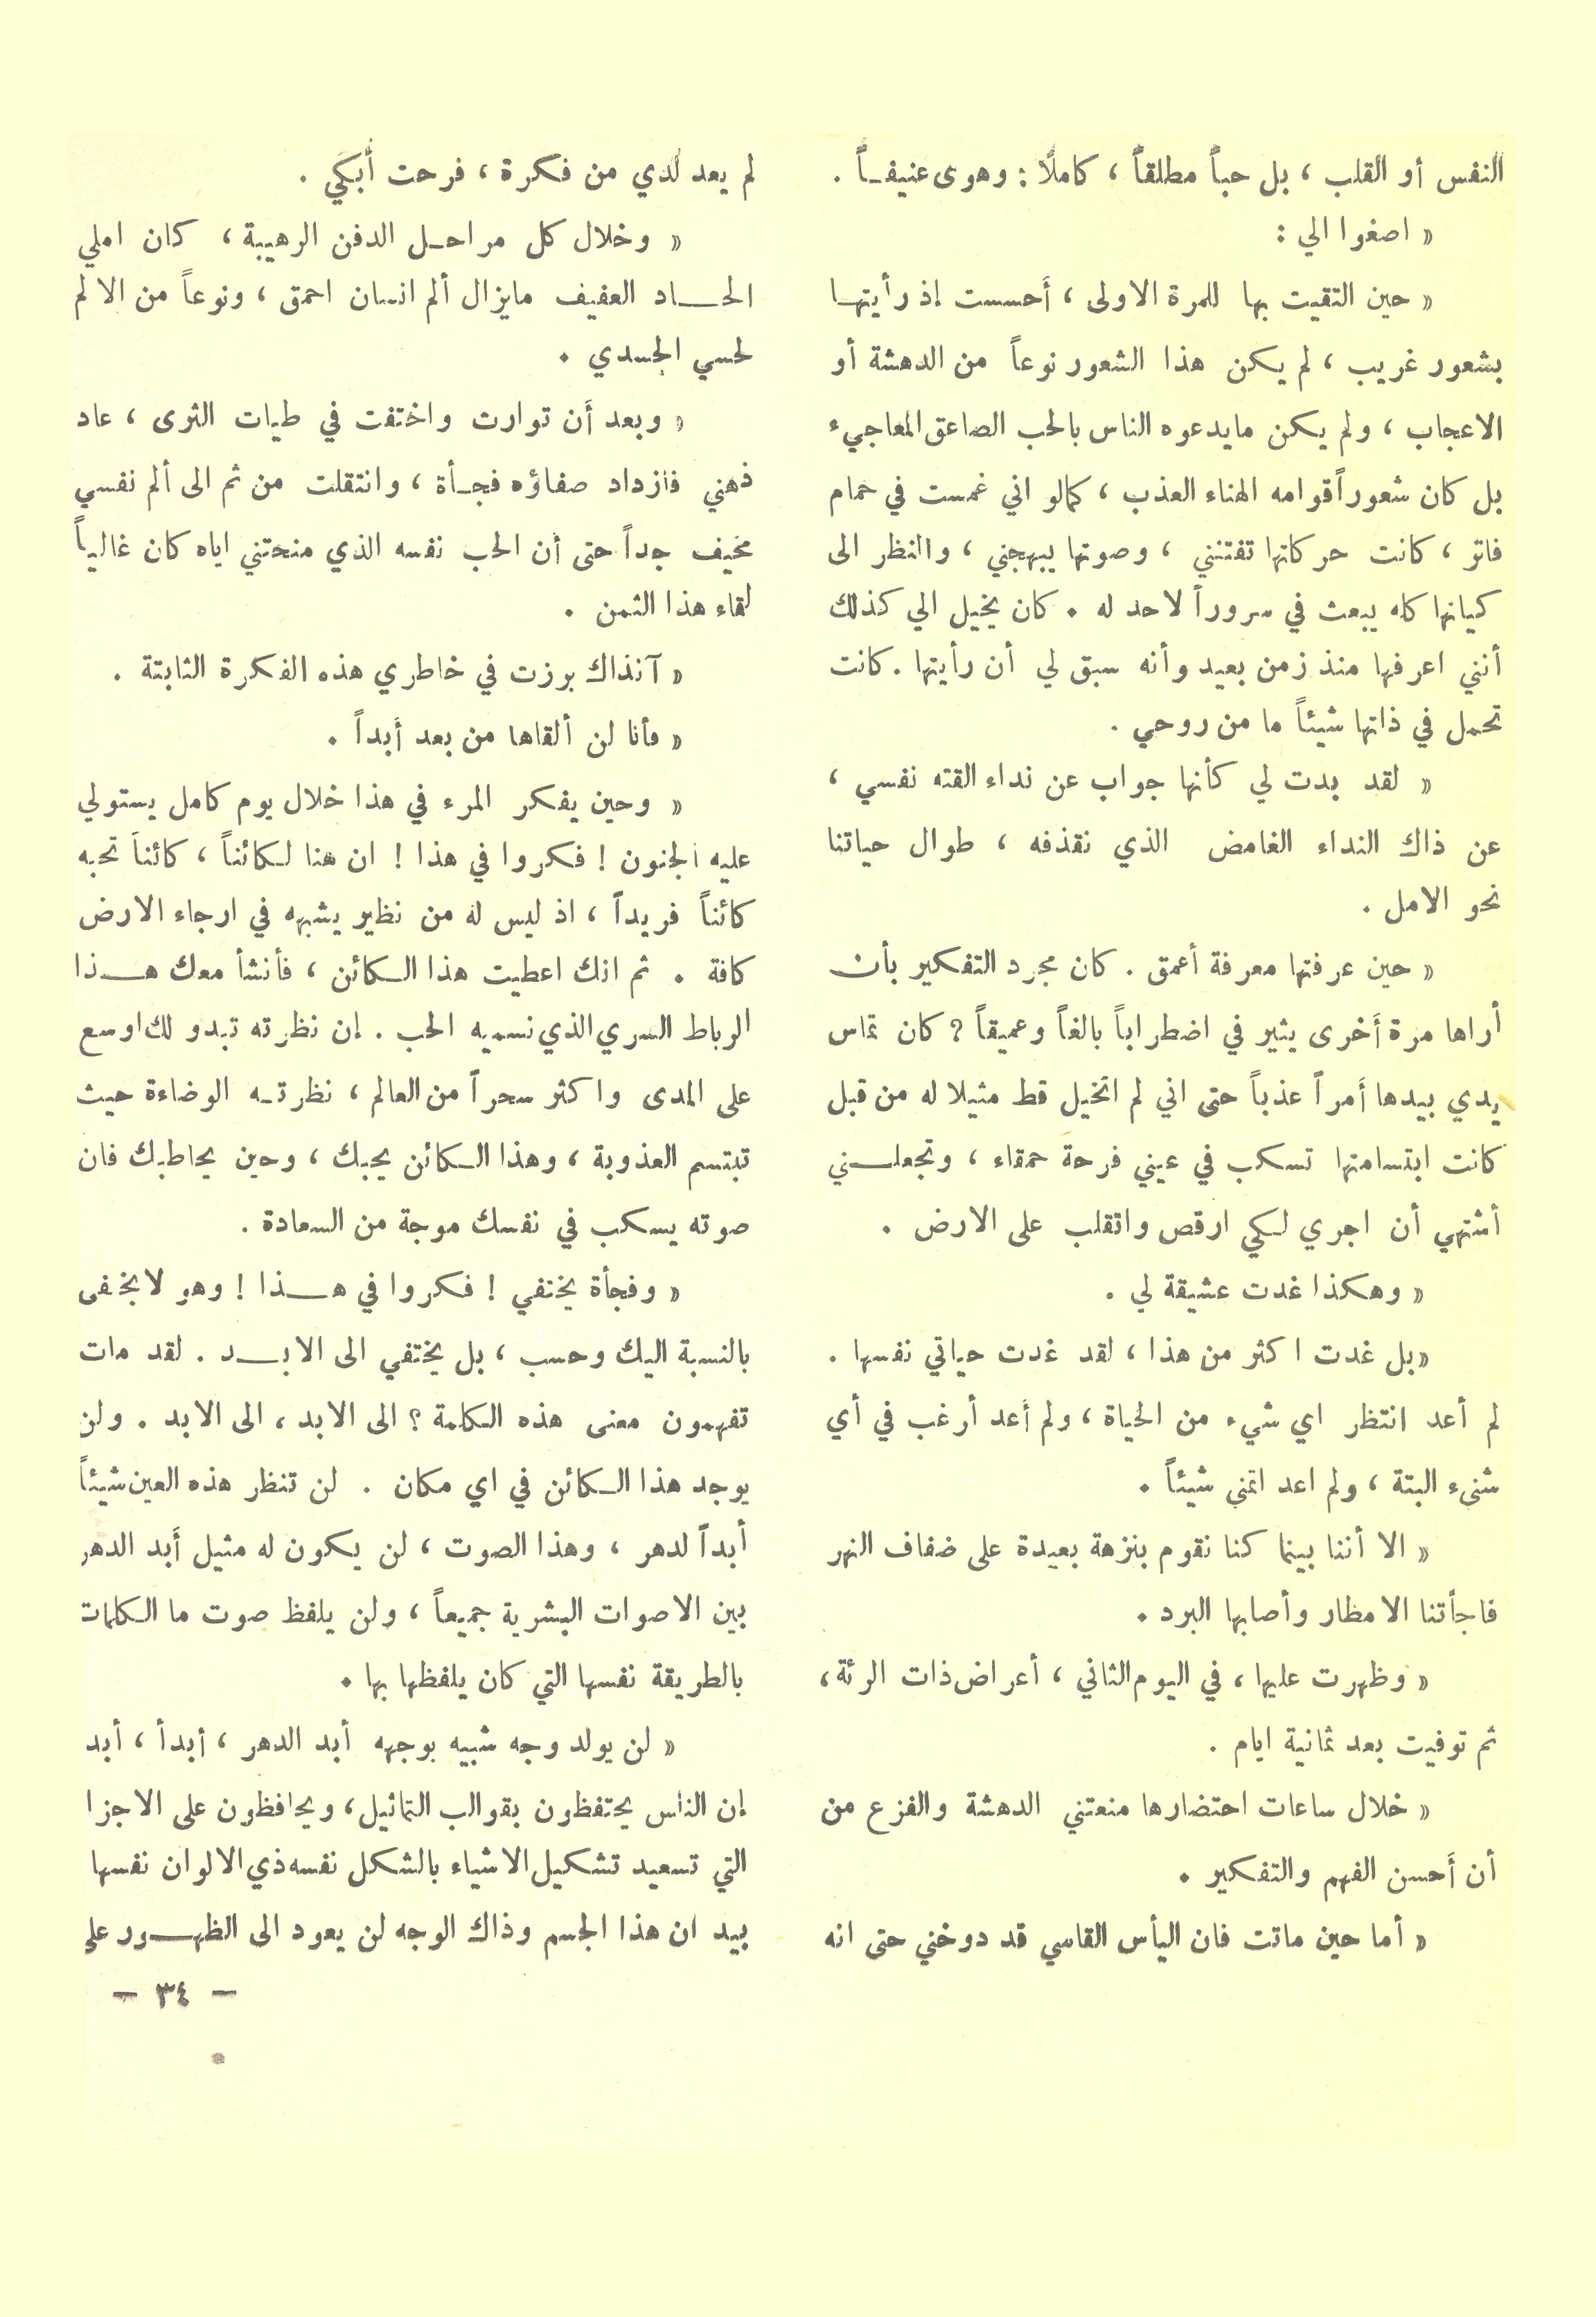 النفس أو القلب ، بل حباً مطلقاً ، كاملًا : وهوى عنيفـاً .
« اصغوا الي :
« حين التقيت بها للمرة الاولى ، أحسست إذ رأيتهـا
بشعور غريب ، لم يكن هذا الشعور نوعاً من الدهشة أو
الاعجاب ، ولم يكن مايدعوه الناس بالحب الصاعق المعاجيء
بل كان شعوراً قوامه الهناء العذب ، كمالو اني غمست في حمام
فاتر ، كانت حركاتها تفتنني ، وصوتها يبهجني ، والنظر الى
كيانها كله يبعث في سروراً لاحد له . كان يخيل الي كذلك
أنني اعرفها منذ زمن بعيد وأنه سبق لي أن رأيتها . كانت
تحمل في ذاتها شيئاً ما من روحي .
« لقد بدت لي كأنها جواب عن نداء القته نفسي ،
عن ذاك النداء الغامض الذي نقذفه ، طوال حياتنا
نحو الامل .
« حين عرفتها معرفة أعمق . كان مجرد التفكير بأن
أراها مرة أخرى يثير في اضطراباً بالغاً وعميقاً ? كان تماس
يدي بيدها أمراً عذباً حتى اني لم اتخيل قط مثيلا له من قبل
كانت ابتسامتها تسكب في عيني فرحة حمقاء ، وتجعلـني
أشتهي أن اجري لكي ارقص واتقلب على الارض .
« وهكذا غدت عشيقة لي .
« بل غدت اكثر من هذا ، لقد غدت حياتي نفسها .
لم أعد انتظر اي شيء من الحياة ، ولم أعد أرغب في أي
شيء البتة ، ولم اعد اتمنى شيئاً .
« الا أننا بينما كنا نقوم بنزهة بعيدة على ضفاف النهر
فاجأتنا الامطار وأصابها البرد .
« وظهرت عليها ، في اليوم الثاني ، أعراض ذات الرئة ،
ثم توفيت بعد ثمانية ايام .
« خلال ساعات احتضارها منعتني الدهشة والفزع من
أن أحسن الفهم والتفكير .
« أما حين ماتت فان اليأس القاسي قد دوخني حتى انه
لم يعد لدي من فكرة ، فرحت أبكي .
« وخلال كل مراحـل الدفن الرهيبة ، كان املي
الحـاد العفيف مايزال ألم انسان احمق ، ونوعاً من الالم
لحسي الجسدي .
« وبعد أن توارت واختفت في طيات الثرى ، عاد
ذهني فازداد صفاؤه فجـأة ، وانتقلت من ثم الى ألم نفسي
مخيف جداً حتى أن الحب نفسه الذي منحتني اياه كان غالياً
لقاء هذا الثمن .
« آنذاك برزت في خاطري هذه الفكرة الثابتة .
« فأنا لن ألقاها من بعد أبداً .
« وحين يفكر المرء في هذا خلال يوم كامل يستولي
عليه الجنون ! فكروا في هذا ! ان هنا لكائناً ، كائناً تحبه
كائناً فريداً ، اذ ليس له من نظير يشبهه في ارجاء الارض
كافة . ثم انك اعطيت هذا الكائن ، فأنشأ معك هـذا
الرباط السري الذي نسميه الحب . إن نظرته تبدو لك اوسع
على المدى واكثر سحراً من العالم ، نظرتـه الوضاءة حيث
تبتسم العذوبة ، وهذا الكائن يحبك ، وحين يخاطبك فان
صوته يسكب في نفسك موجة من السعادة .
« وفجأة يختفي ! فكروا في هـذا ! وهو لايخفى
بالنسبة اليك وحسب ، بل يختفي الى الابـد . لقد مات
تفهمون معنى هذه الكلمة ؟ الى الابد ، الى الابد . ولن
يوجد هذا الكائن في اي مكان . لن تنظر هذه العين شيئاً
أبداً لدهر ، وهذا الصوت ، لن يكون له مثيل أبد الدهر
بين الاصوات البشرية جميعاً ، ولن يلفظ صوت ما الكلمات
بالطريقة نفسها التي كان يلفظها بها .
« لن يولد وجه شبيه بوجهه أبد الدهر ، أبداً ، أبد
إن الناس يحتفظون بقوالب التماثيل ، ويحافظون على الاجزا
التي تسعيد تشكيل الاشياء بالشكل نفسه ذي الالوان نفسها
بيد ان هذا الجسم وذاك الوجه لن يعود الى الظهـور على
– ٣٤ –